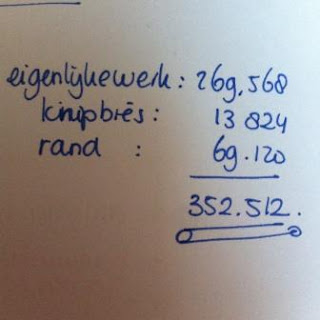 eigenlijkewerk: 269.568
knipbriės: 13 824
rand : 69.120
352.512.